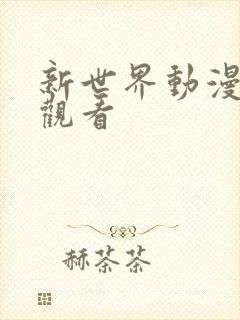 新世界動漫
觀看
赫茶茶